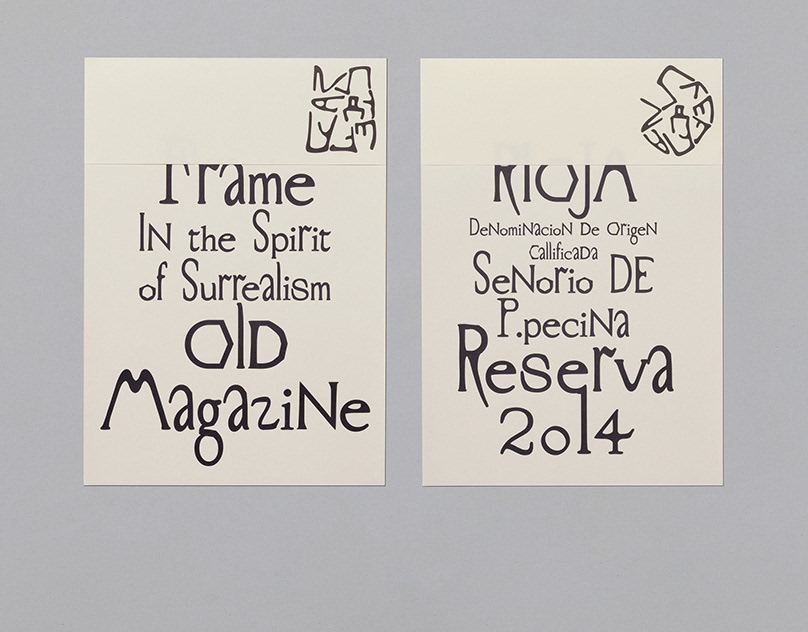 Frame
IN the Spirit
of Surrealism
OlD
MagaziNe
RIOJA
DeNomiNacioN De OrigeN
CallificaDa
SeNorio DE
P.peciNa
Reserva
2014